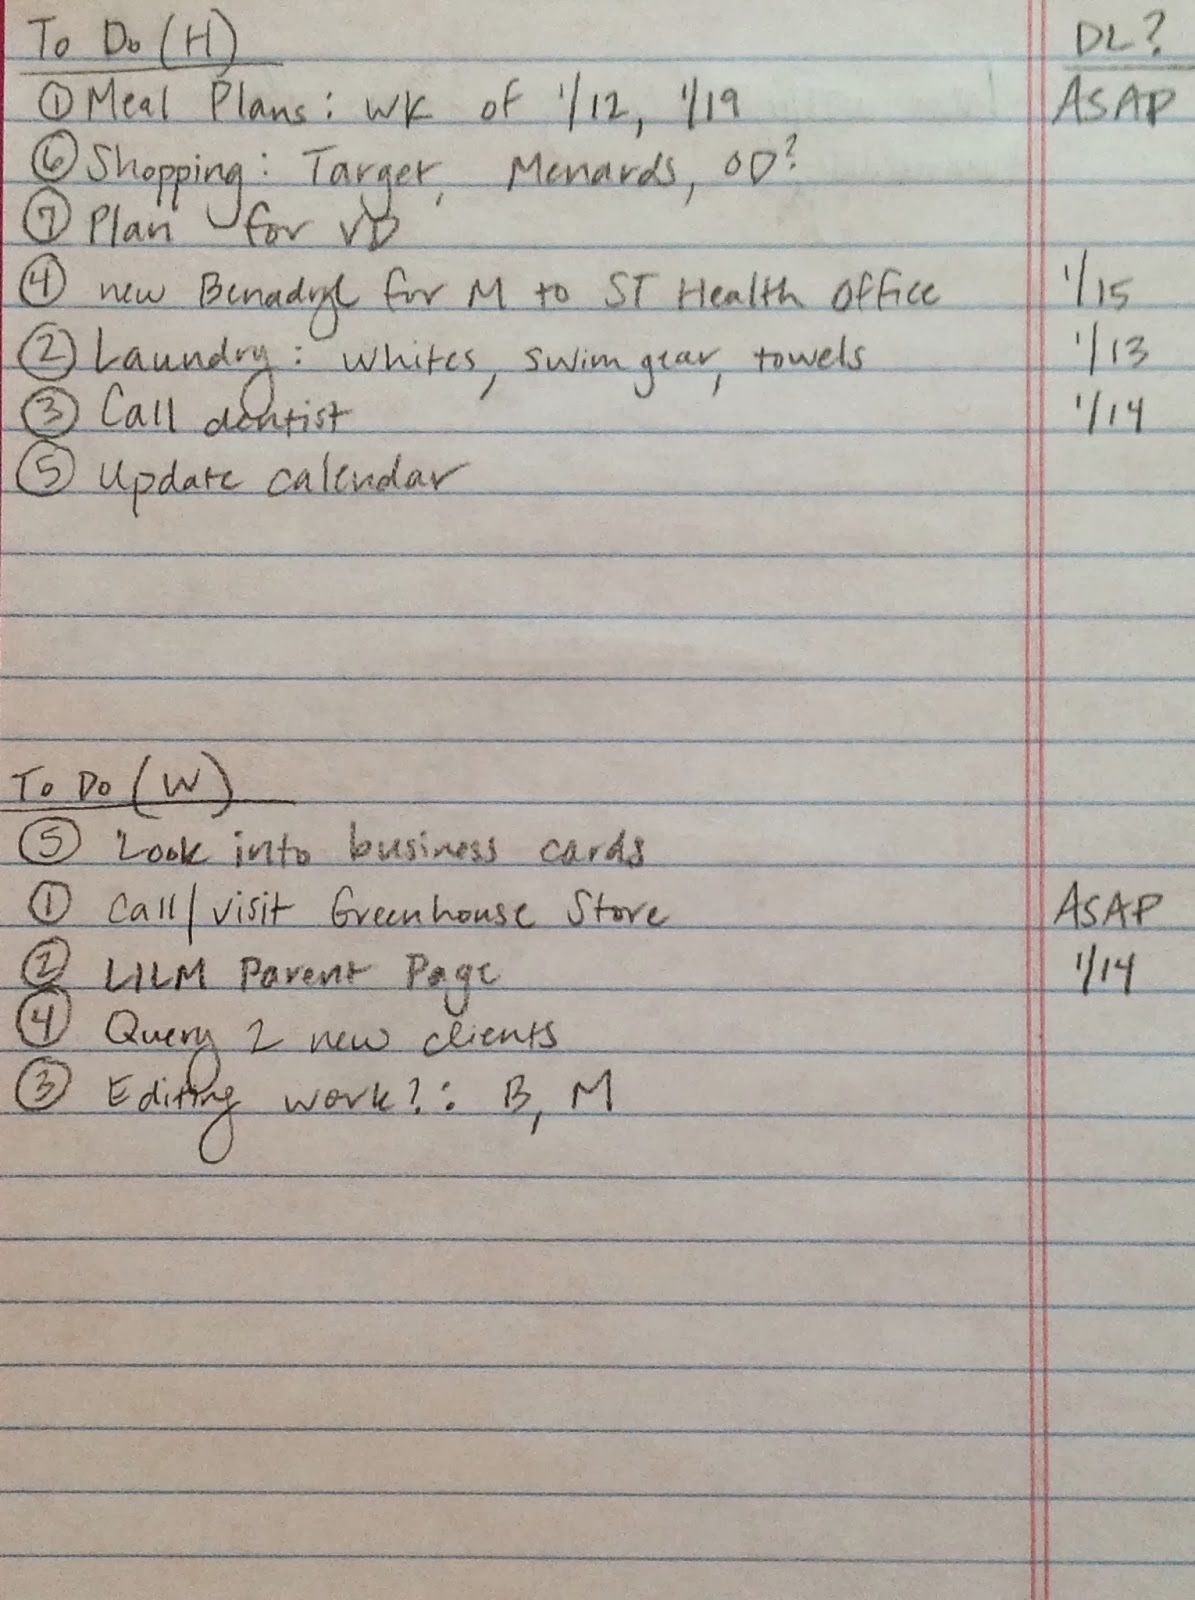 To Do (H) DL?
① Meal Plans: wk of 1/12, 1/19 ASAP
⑥ Shopping: Target, Menards, OD?
⑦ Plan for VD
④ new Benadryl for M to ST Health Office 1/15
② Laundry: whites, swim gear, towels 1/13
③ Call dentist 1/14
⑤ Update calendar
To Do (W)
⑤ Look into business cards
① Call/visit Greenhouse Store ASAP
② LILM Parent Page 1/14
④ Query 2 new clients
③ Editing work?: B, M